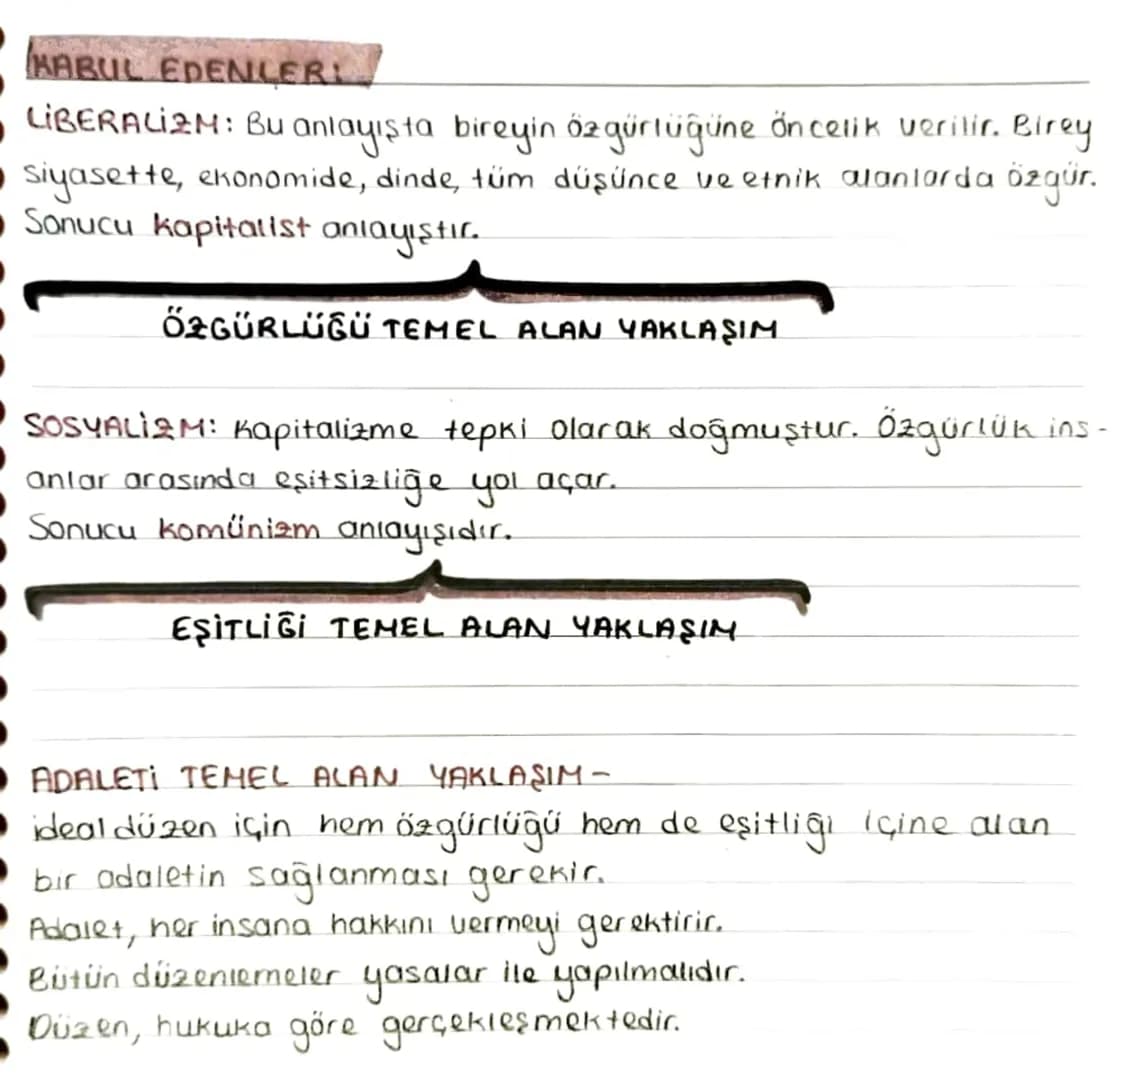 KABUL EDENLERİ
LİBERALİZM: Bu anlayışta bireyin özgürlüğüne öncelik verilir. Birey
siyasette, ekonomide, dinde, tüm düşünce ve etnik alanlarda özgür.
Sonucu kapitalist anlayıştır.
ÖZGÜRLÜĞÜ TEMEL ALAN YAKLAŞIM
SOSYALİZM: Kapitalizme tepki olarak doğmuştur. Özgürlük ins-
anlar arasında eşitsizliğe yol açar.
Sonucu komünizm anlayışıdır.
EŞİTLİĞİ TEMEL ALAN YAKLAŞIM
ADALETİ TEMEL ALAN YAKLAŞIM-
ideal düzen için hem özgürlüğü hem de eşitliği içine alan
bir adaletin sağlanması gerekir.
Adalet, her insana hakkını vermeyi gerektirir.
Bütün düzenlemeler yasalar ile yapılmalıdır.
Düzen, hukuka göre gerçekleşmektedir.